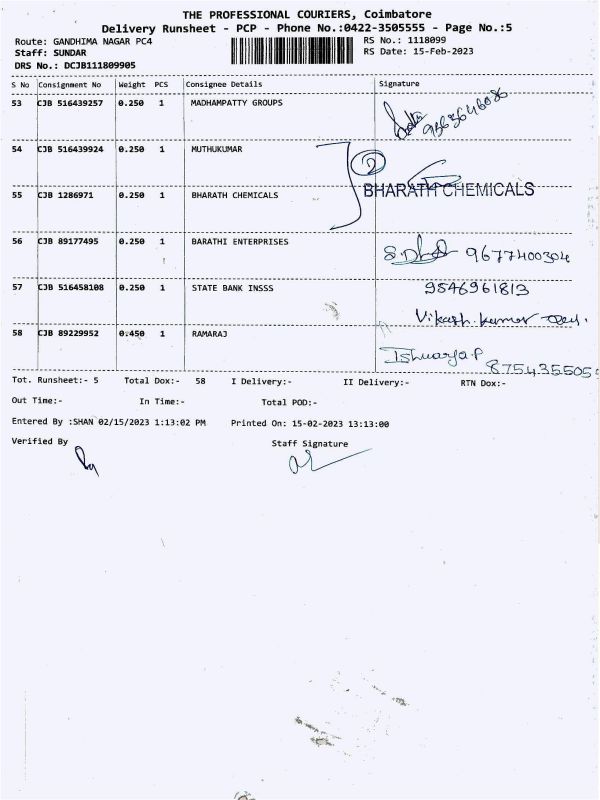 THE PROFESSIONAL COURIERS, Coimbatore
Delivery Runsheet - PCP - Phone No.:0422-3505555 - Page No.:5
Route: GANDHIMA NAGAR PC4
RS No.: 1118099
Staff: SUNDAR
RS Date: 15-Feb-2023
DRS No.: DCJB111809905
S No Consignment No Weight PCS Consignee Details Signature
53 CJB 516439257 0.250 1 MADHAMPATTY GROUPS
54 CJB 516439924 0.250 1 MUTHUKUMAR
2
55 CJB 1286971 0.250 1 BHARATH CHEMICALS BHARATH CHEMICALS
56 CJB 89177495 0.250 1 BARATHI ENTERPRISES 9677400304
57 CJB 516458108 0.250 1 STATE BANK INSSS 9546961813
Vikash kumar
58 CJB 89229952 0.450 1 RAMARAJ Ishwarya.P
875435505
Tot. Runsheet:- 5 Total Dox:- 58 I Delivery:- II Delivery:- RTN Dox:-
Out Time:- In Time:- Total POD:-
Entered By :SHAN 02/15/2023 1:13:02 PM Printed On: 15-02-2023 13:13:00
Verified By Staff Signature